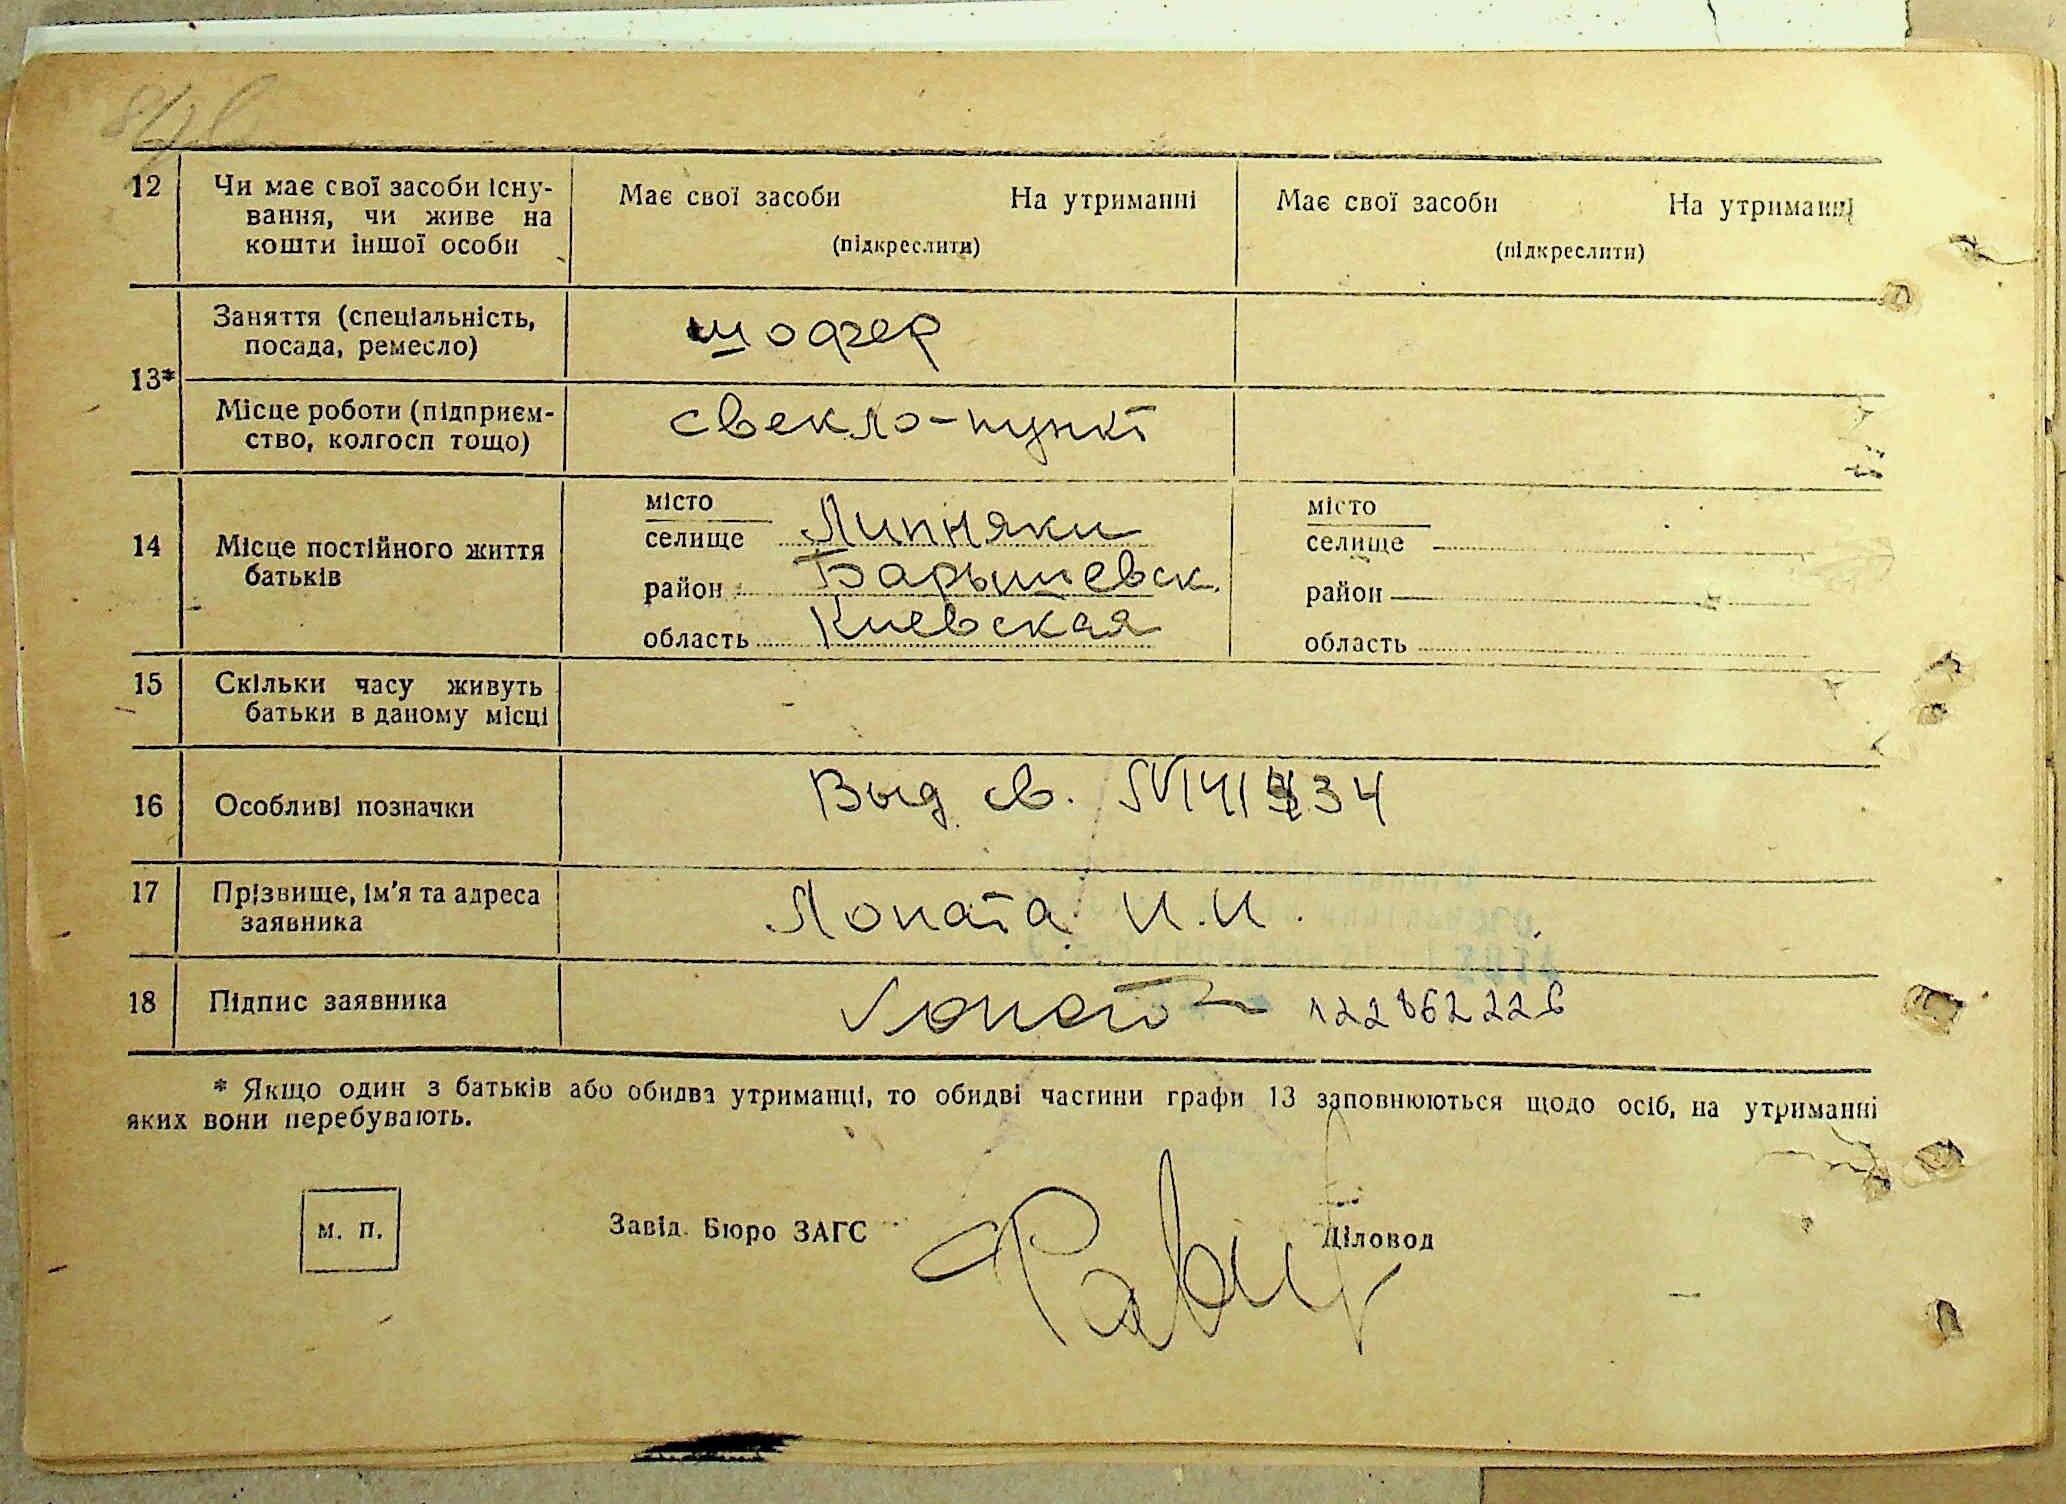 12 Чи має свої засоби існу-
вання, чи живе на
кошти іншої особи
Має свої засоби На утриманні
(підкреслити)
Має свої засоби На утриманні
(підкреслити)
13*
Заняття (спеціальність,
посада, ремесло)
шофер
Місце роботи (підприєм-
ство, колгосп тощо)
свекло-пункт
14 Місце постійного життя
батьків
місто
селище Липняки
район Барышевск.
область Киевская
місто
селище
район
область
15 Скільки часу живуть
батьки в даному місці
16 Особливі позначки
Выд св.
17 Прізвище, ім'я та адреса
заявника
Лопата И.И.
18 Підпис заявника
Лопата
* Якщо один з батьків або обидва утриманці, то обидві частини графи 13 заповнюються щодо осіб, на утриманні
яких вони перебувають.
м. п.
Завід. Бюро ЗАГС
Діловод